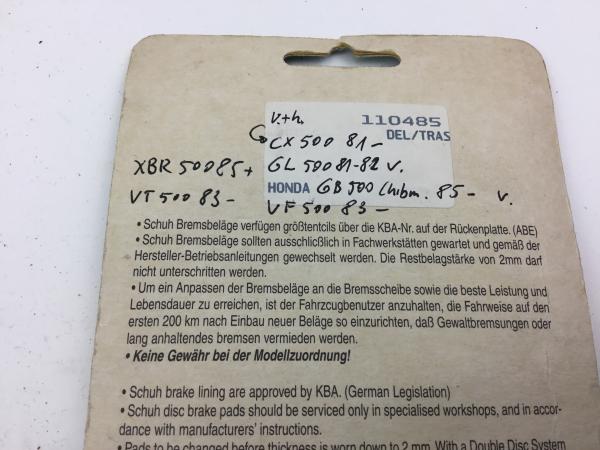 v.+h.
110485
DEL/TRAS
CX 500 81-
XBR 500 85+
GL 500 81-82 v.
VT 500 83-
HONDA GB 500 Clubm. 85- v.
VF 500 83-
• Schuh Bremsbeläge verfügen größtentcils über die KBA-Nr. auf der Rückenplatte. (ABE)
• Schuh Bremsbeläge sollten ausschlicßlich in Fachwerkstätten gewartet und gemäß der
Hersteller-Betriebsanleitungen gewechselt werden. Die Restbelagstärke von 2mm darf
nicht unterschritten werden.
• Um ein Anpassen der Bremsbeläge an die Bremsscheibe sowie die beste Leistung und
Lebensdauer zu erreichen, ist der Fahrzcugbenutzer anzuhalten, die Fahrweise auf den
ersten 200 km nach Einbau neuer Beläge so einzurichten, daß Gewaltbremsungen oder
lang anhaltendes bremsen vermieden werden.
• Keine Gewähr bei der Modellzuordnung!
• Schuh brake lining are approved by KBA. (German Legislation)
• Schuh disc brake pads should be serviced only in specialised workshops, and in accor-
dance with manufacturers' instructions.
• Pads to be changed before thickness is worn down to 2 mm. With a Double Disc System